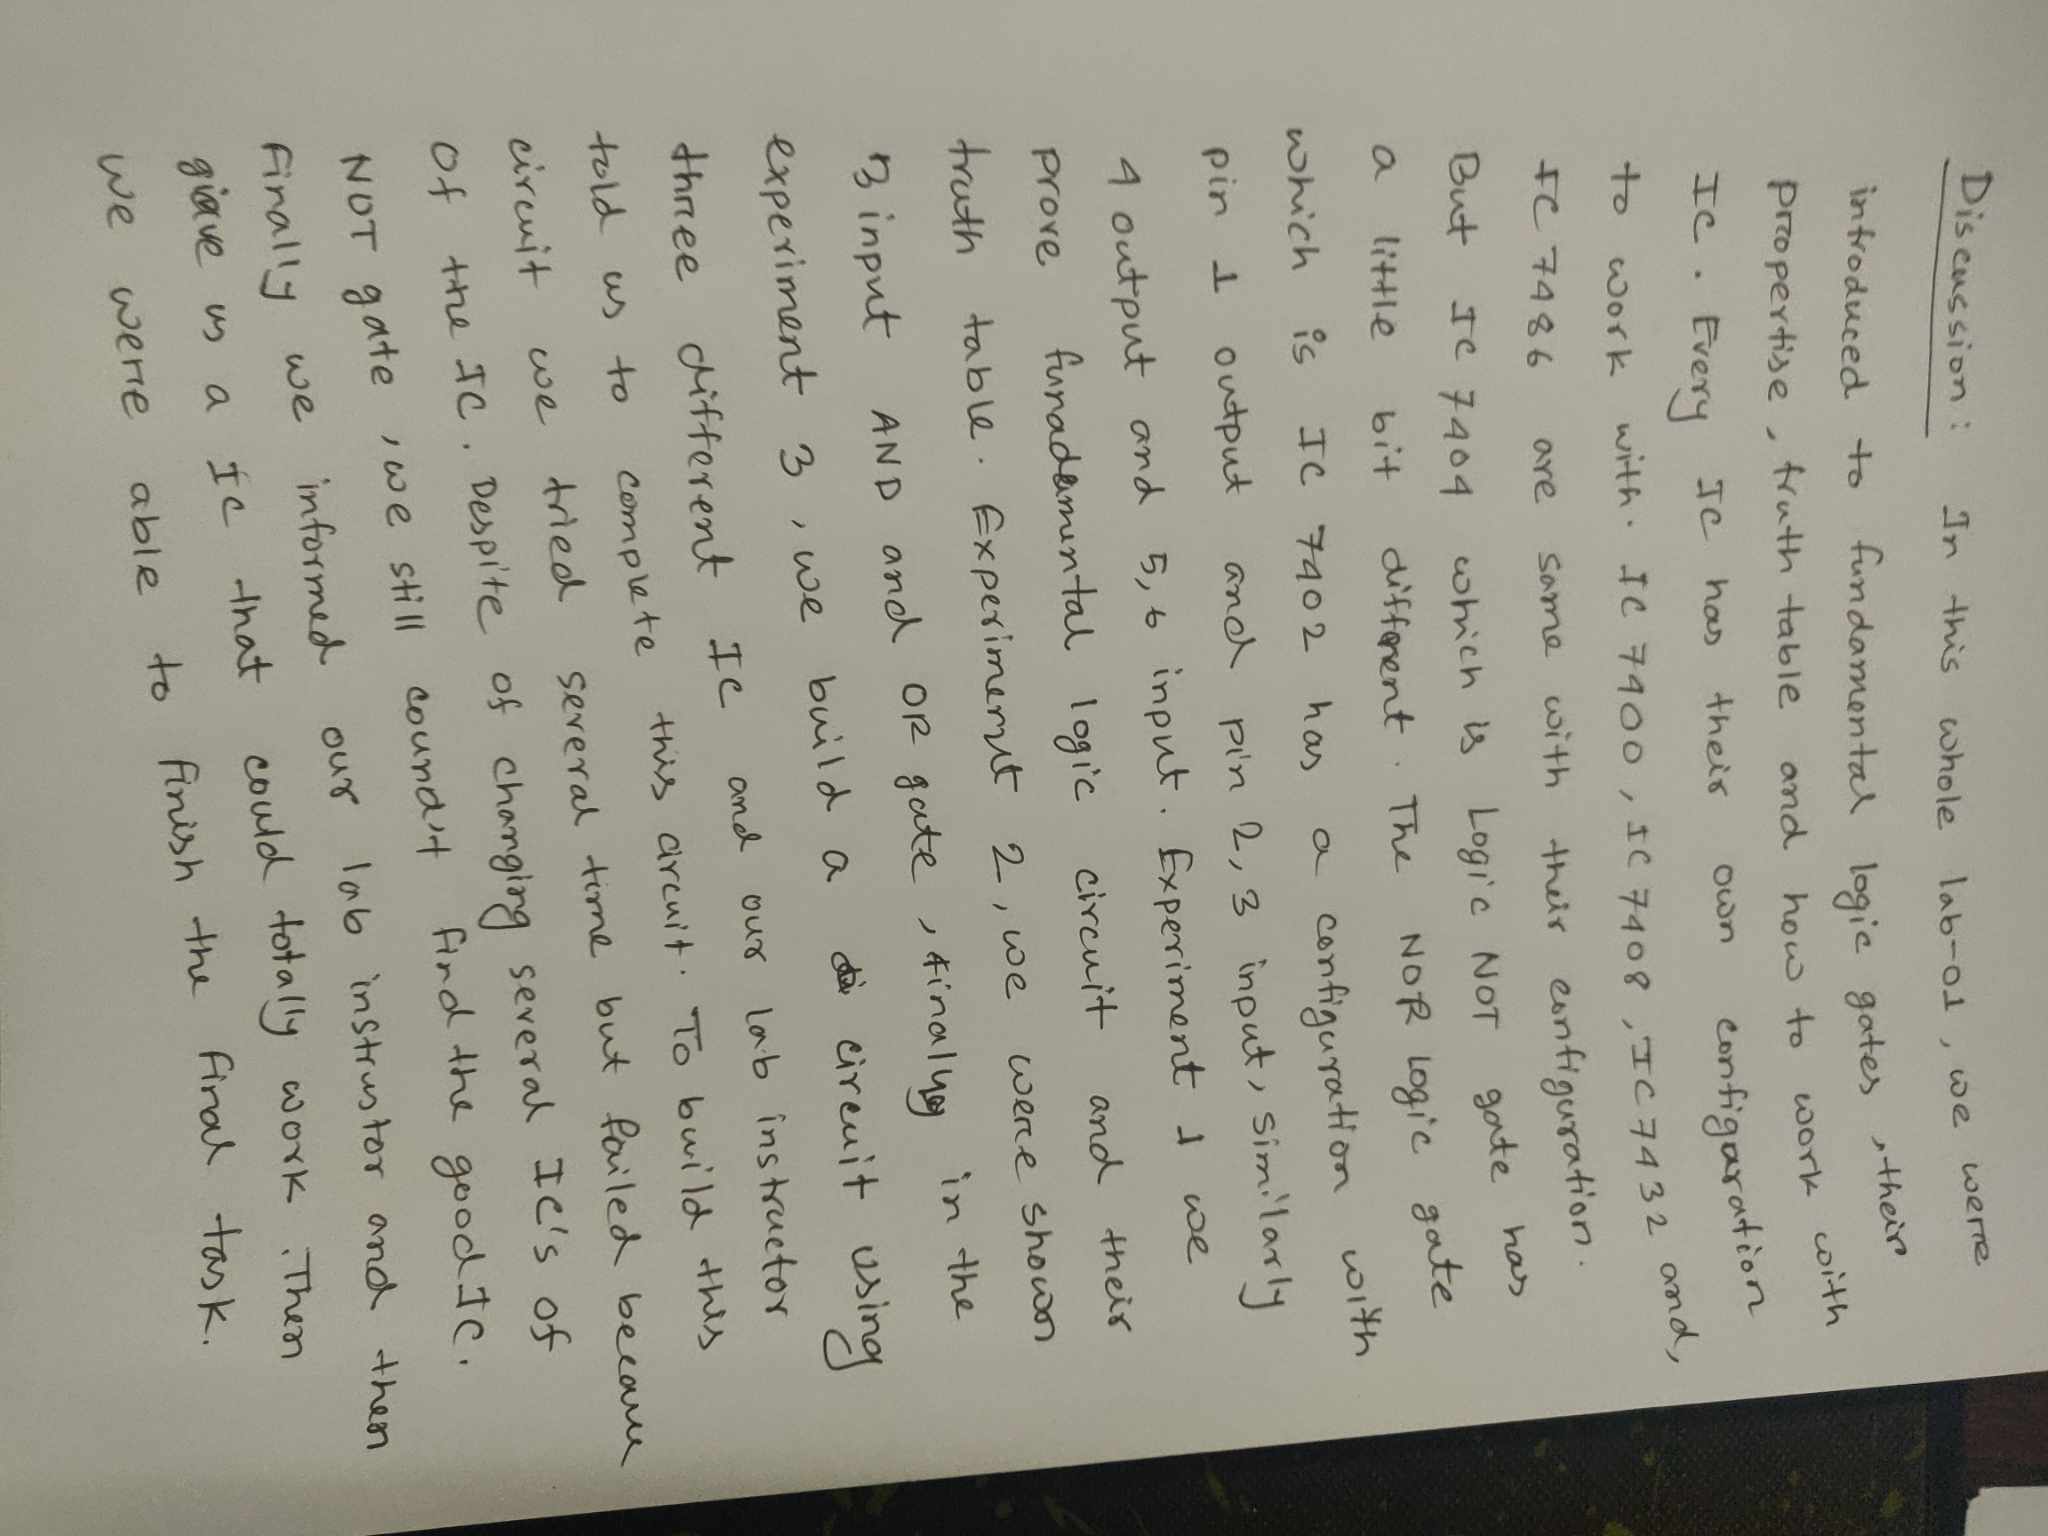 Discussion: In this whole lab-01, we were
introduced to fundamental logic gates, their
propertise, truth table and how to work with
IC. Every IC has their own configuration
to work with. IC 7400, IC 7408, IC 7432 and,
IC 7486 are same with their configuration.
But IC 7404 which is Logic NOT gate has
a little bit different. The NOR logic gate
which is IC 7402 has a configuration with
pin 1 output and pin 2,3 input, similarly
4 output and 5,6 input. Experiment 1 we
prove funadamental logic circuit and their
truth table. Experiment 2, we were shown
3 input AND and OR gate, finally in the
experiment 3, we build a circuit using
three different IC and our lab instructor
told us to complete this circuit. To build this
circuit we tried several time but failed because
of the IC. Despite of changing several IC's of
NOT gate, we still coundn't find the good IC.
Finally we informed our lab instrustor and then
giave us a IC that could totally work. Then
we were able to finish the final task.